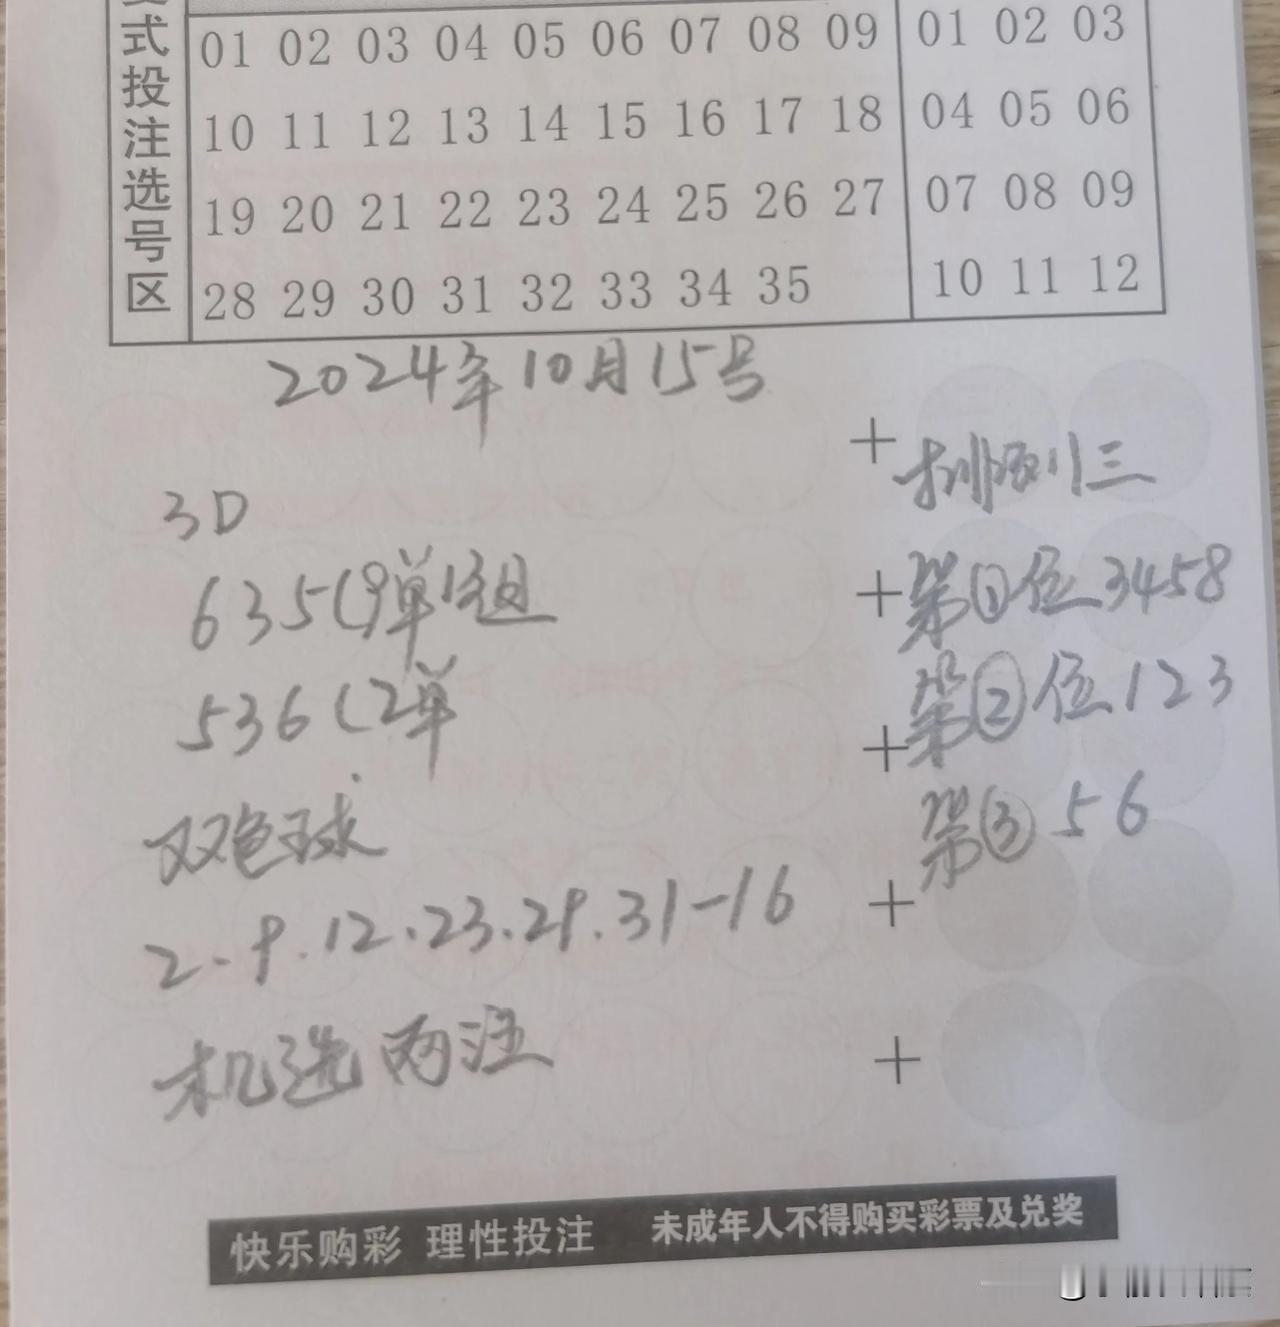 式投注选号区
01 02 03 04 05 06 07 08 09
10 11 12 13 14 15 16 17 18
19 20 21 22 23 24 25 26 27
28 29 30 31 32 33 34 35
01 02 03
04 05 06
07 08 09
10 11 12
2024年10月15号
3D
635(9单1组
536(2单
双色球
2.9.12.23.29.31-16
机选两注
+排列三
+第①位3458
第②位123
+
第③56
+
+
快乐购彩 理性投注 未成年人不得购买彩票及兑奖